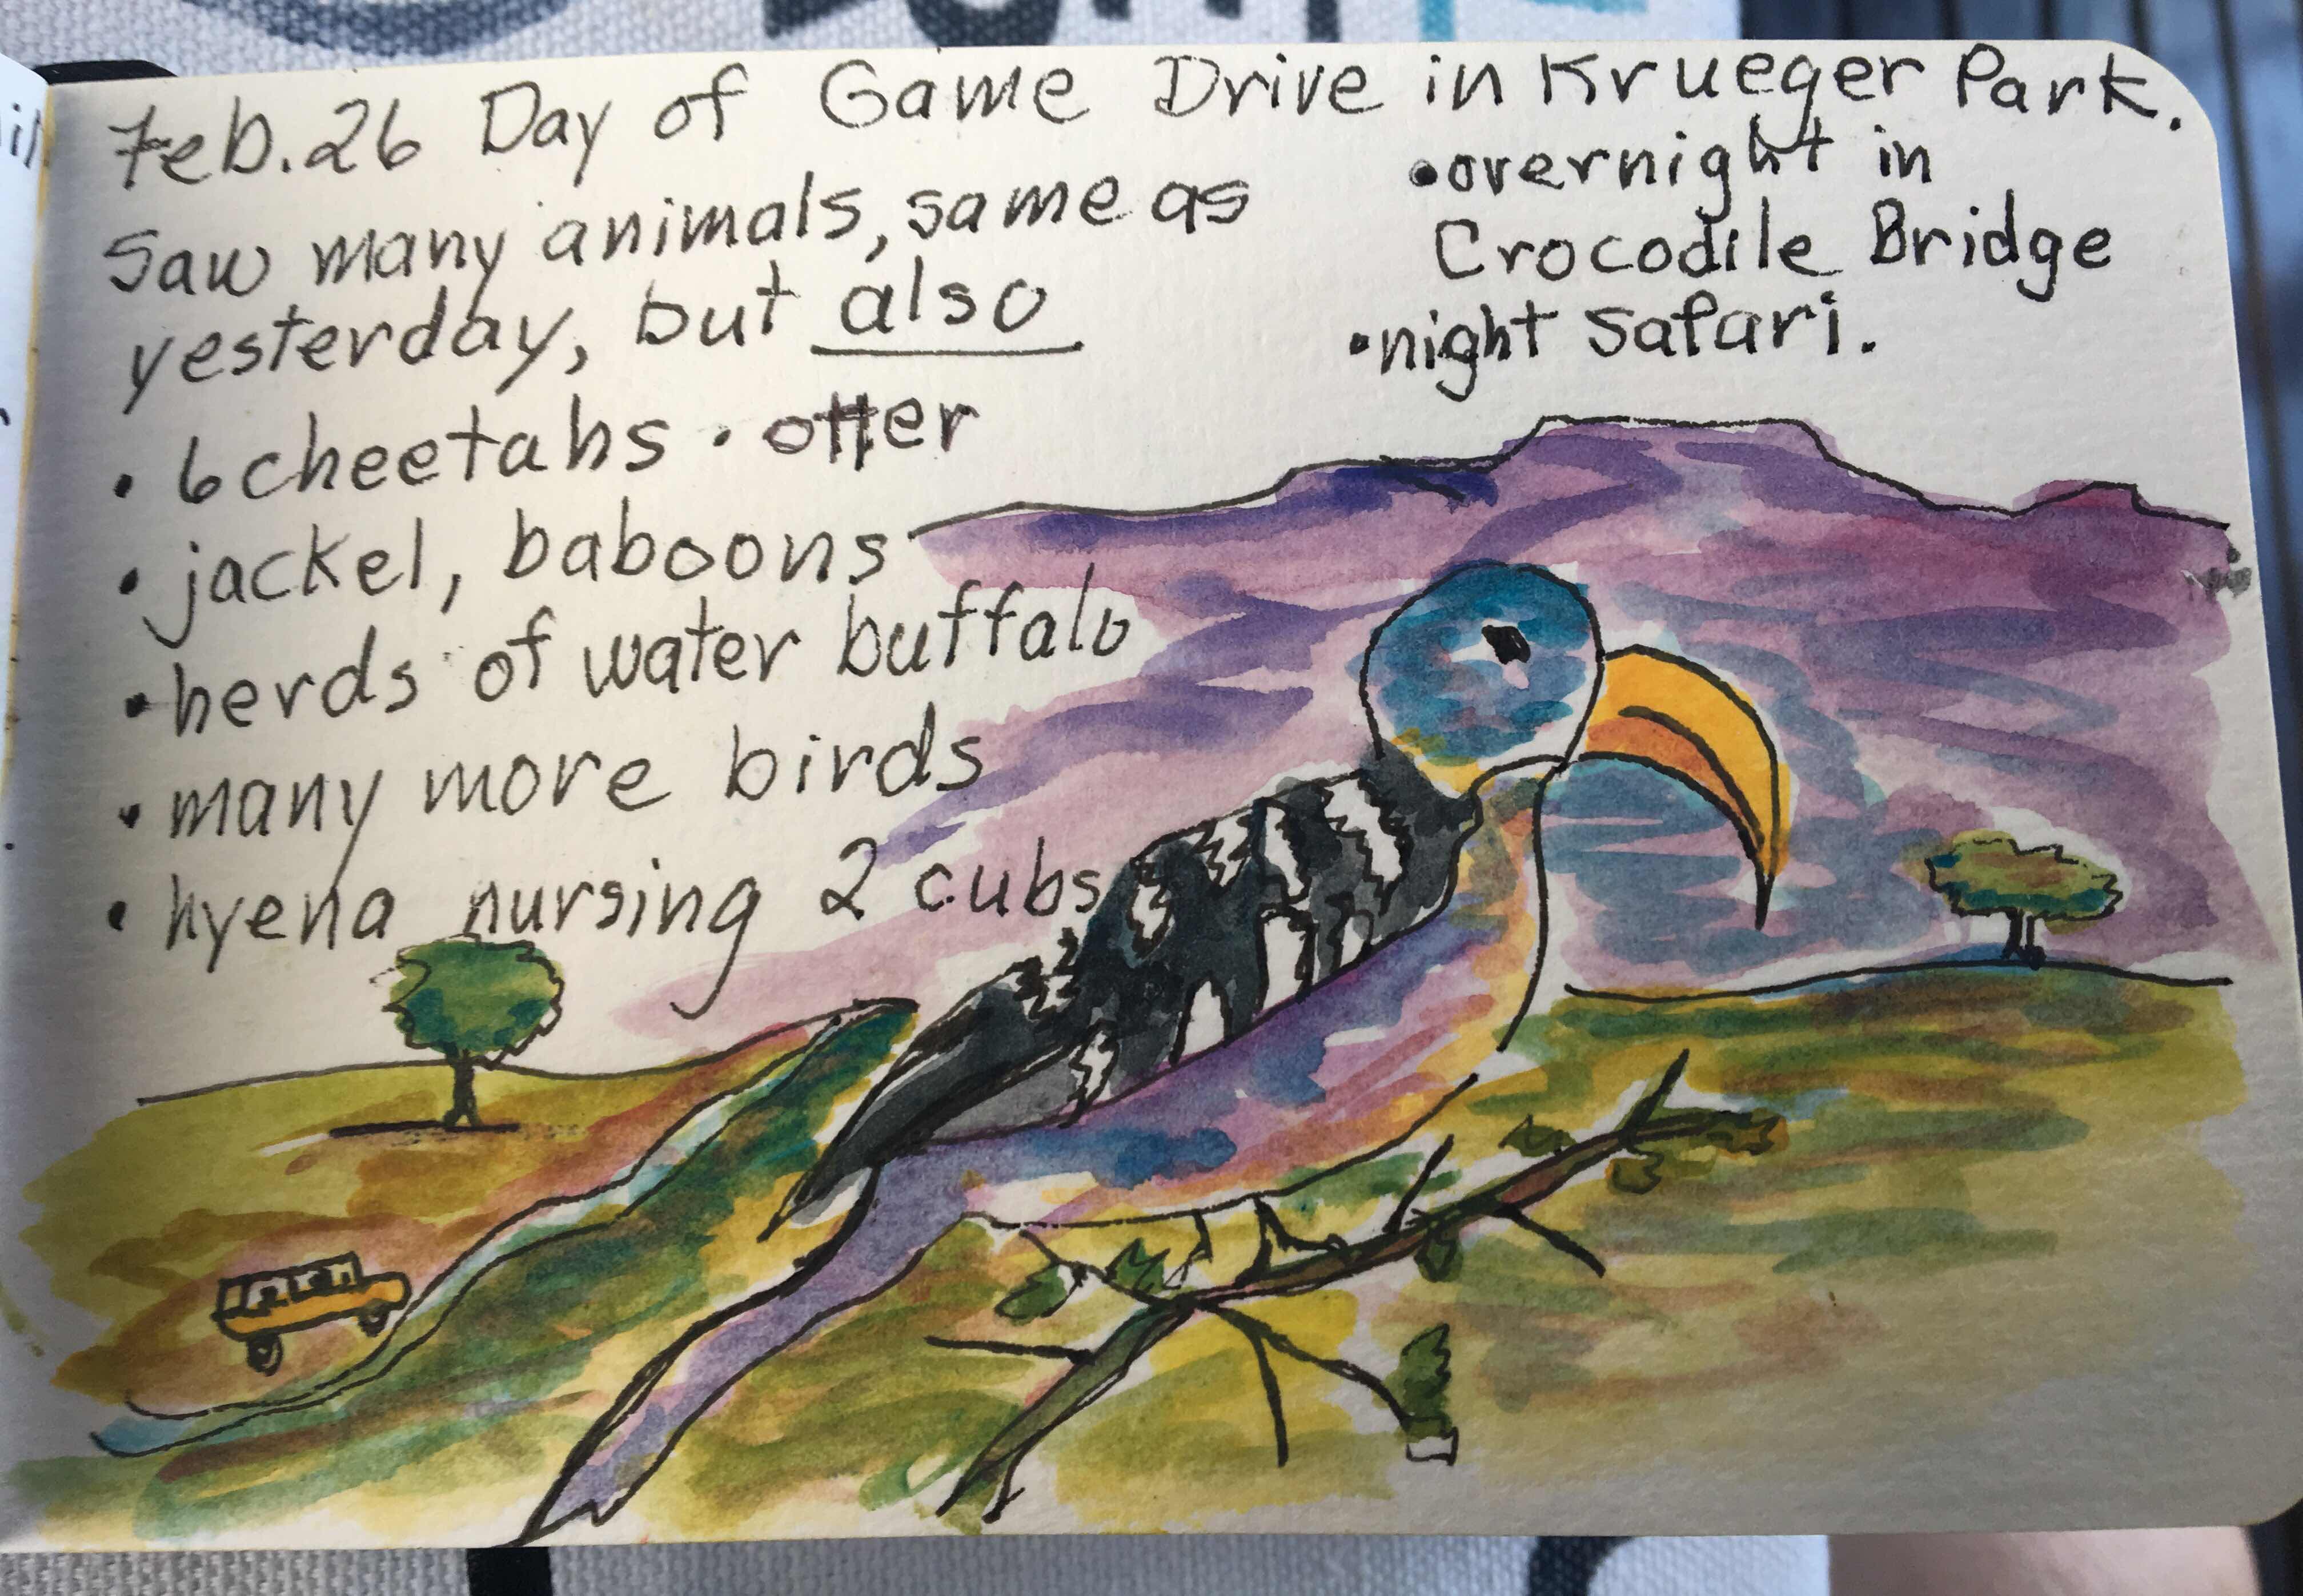 Feb. 26 Day of Game Drive in Krueger Park.
Saw many animals, same as
yesterday, but also
• 6 cheetahs • otter
• jackel, baboons
• herds of water buffalo
• many more birds
• hyena nursing 2 cubs
• overnight in
Crocodile Bridge
• night safari.